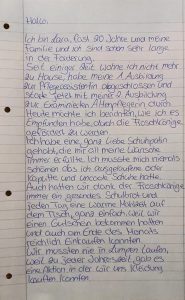 Hallo,
Ich bin Lara, fast 20 Jahre und meine
Familie und ich sind schon sehr lange
in der Förderung.
Seit einiger Zeit wohne ich nicht mehr
zu Hause, habe meine 1 Ausbildung
zur Pflegeassistentin abgeschlossen und
starte jetzt mit meiner 2. Ausbildung
zur Examinierten Altenpflegerin durch.
Heute möchte ich berichten, wie ich es
Empfunden habe durch die Froschkönige
gefördert zu werden.
Ich habe eine ganz liebe Schulpatin
gehabt, die mir all meine Wünsche
immer erfüllte. Ich musste mich niemals
schämen das ich ausgelaufene oder
kaputte und uncoole Schuhe hatte.
Auch hatten wir dank der Froschkönige
immer ein gesundes Schulbrot und
jeden Tag eine warme Mahlzeit auf
dem Tisch, ganz einfach weil wir
einen Gutschein bekommen haben
und auch am Ende des Monats
reichlich Einkaufen konnten.
Wir mussten nie in Lumpen laufen,
den zu jeder Jahreszeit, gab es
eine Aktion in der wir uns Kleidung
kaufen konnten.